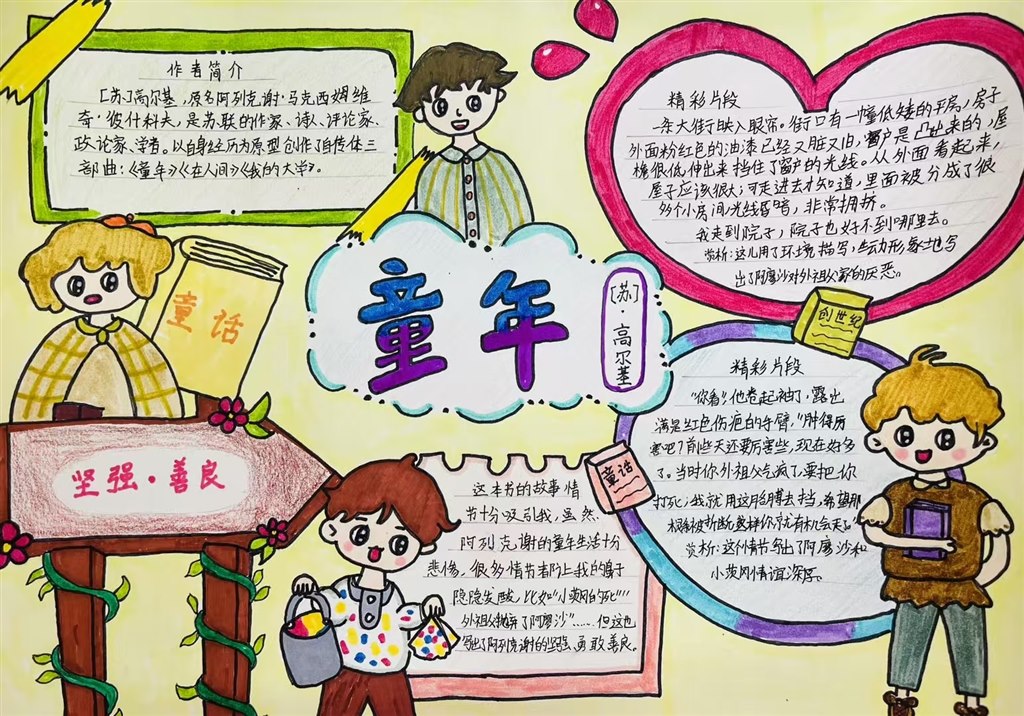 作者简介
[苏]高尔基,原名阿列克谢·马克西姆维
奇·彼什科夫,是苏联的作家、诗人、评论家、
政论家、学者。以自身经历为原型创作了自传体三
部曲:《童年》《在人间》《我的大学》。
童话
童年
[苏]·高尔基
坚强·善良
精彩片段
一条大街映入眼帘。街口有一幢低矮的平房,房子
外面粉红色的油漆已经又脏又旧,窗户是凸出来的,屋
檐很低,伸出来挡住了窗户的光线。从外面看起来,
屋子应该很大;可走进去才知道,里面被分成了很
多个小房间,光线昏暗,非常拥挤。
我走到院子,院子也好不到哪里去。
赏析:这儿用了环境描写,生动形象地写
出了阿廖沙对外祖父家的厌恶。
创世纪
精彩片段
“你看!”他卷起袖口,露出
满是红色伤疤的手臂,“肿得厉
害吧?前些天还要厉害些,现在好多
了。当时你外祖父气疯了,要把你
打死,我就用这胳膊去挡,希望那
树条被折断,这样你就有机会逃。
赏析:这个情节写出了阿廖沙和
小茨冈情谊深厚。
童话
这本书的故事情
节十分吸引我,虽然
阿列克谢的童年生活十分
悲惨,很多情节都让我的鼻子
隐隐发酸,比如“小茨冈的死”“
外祖父抛弃了阿廖沙”……但这也
写出了阿列克谢的坚强、勇敢、善良。